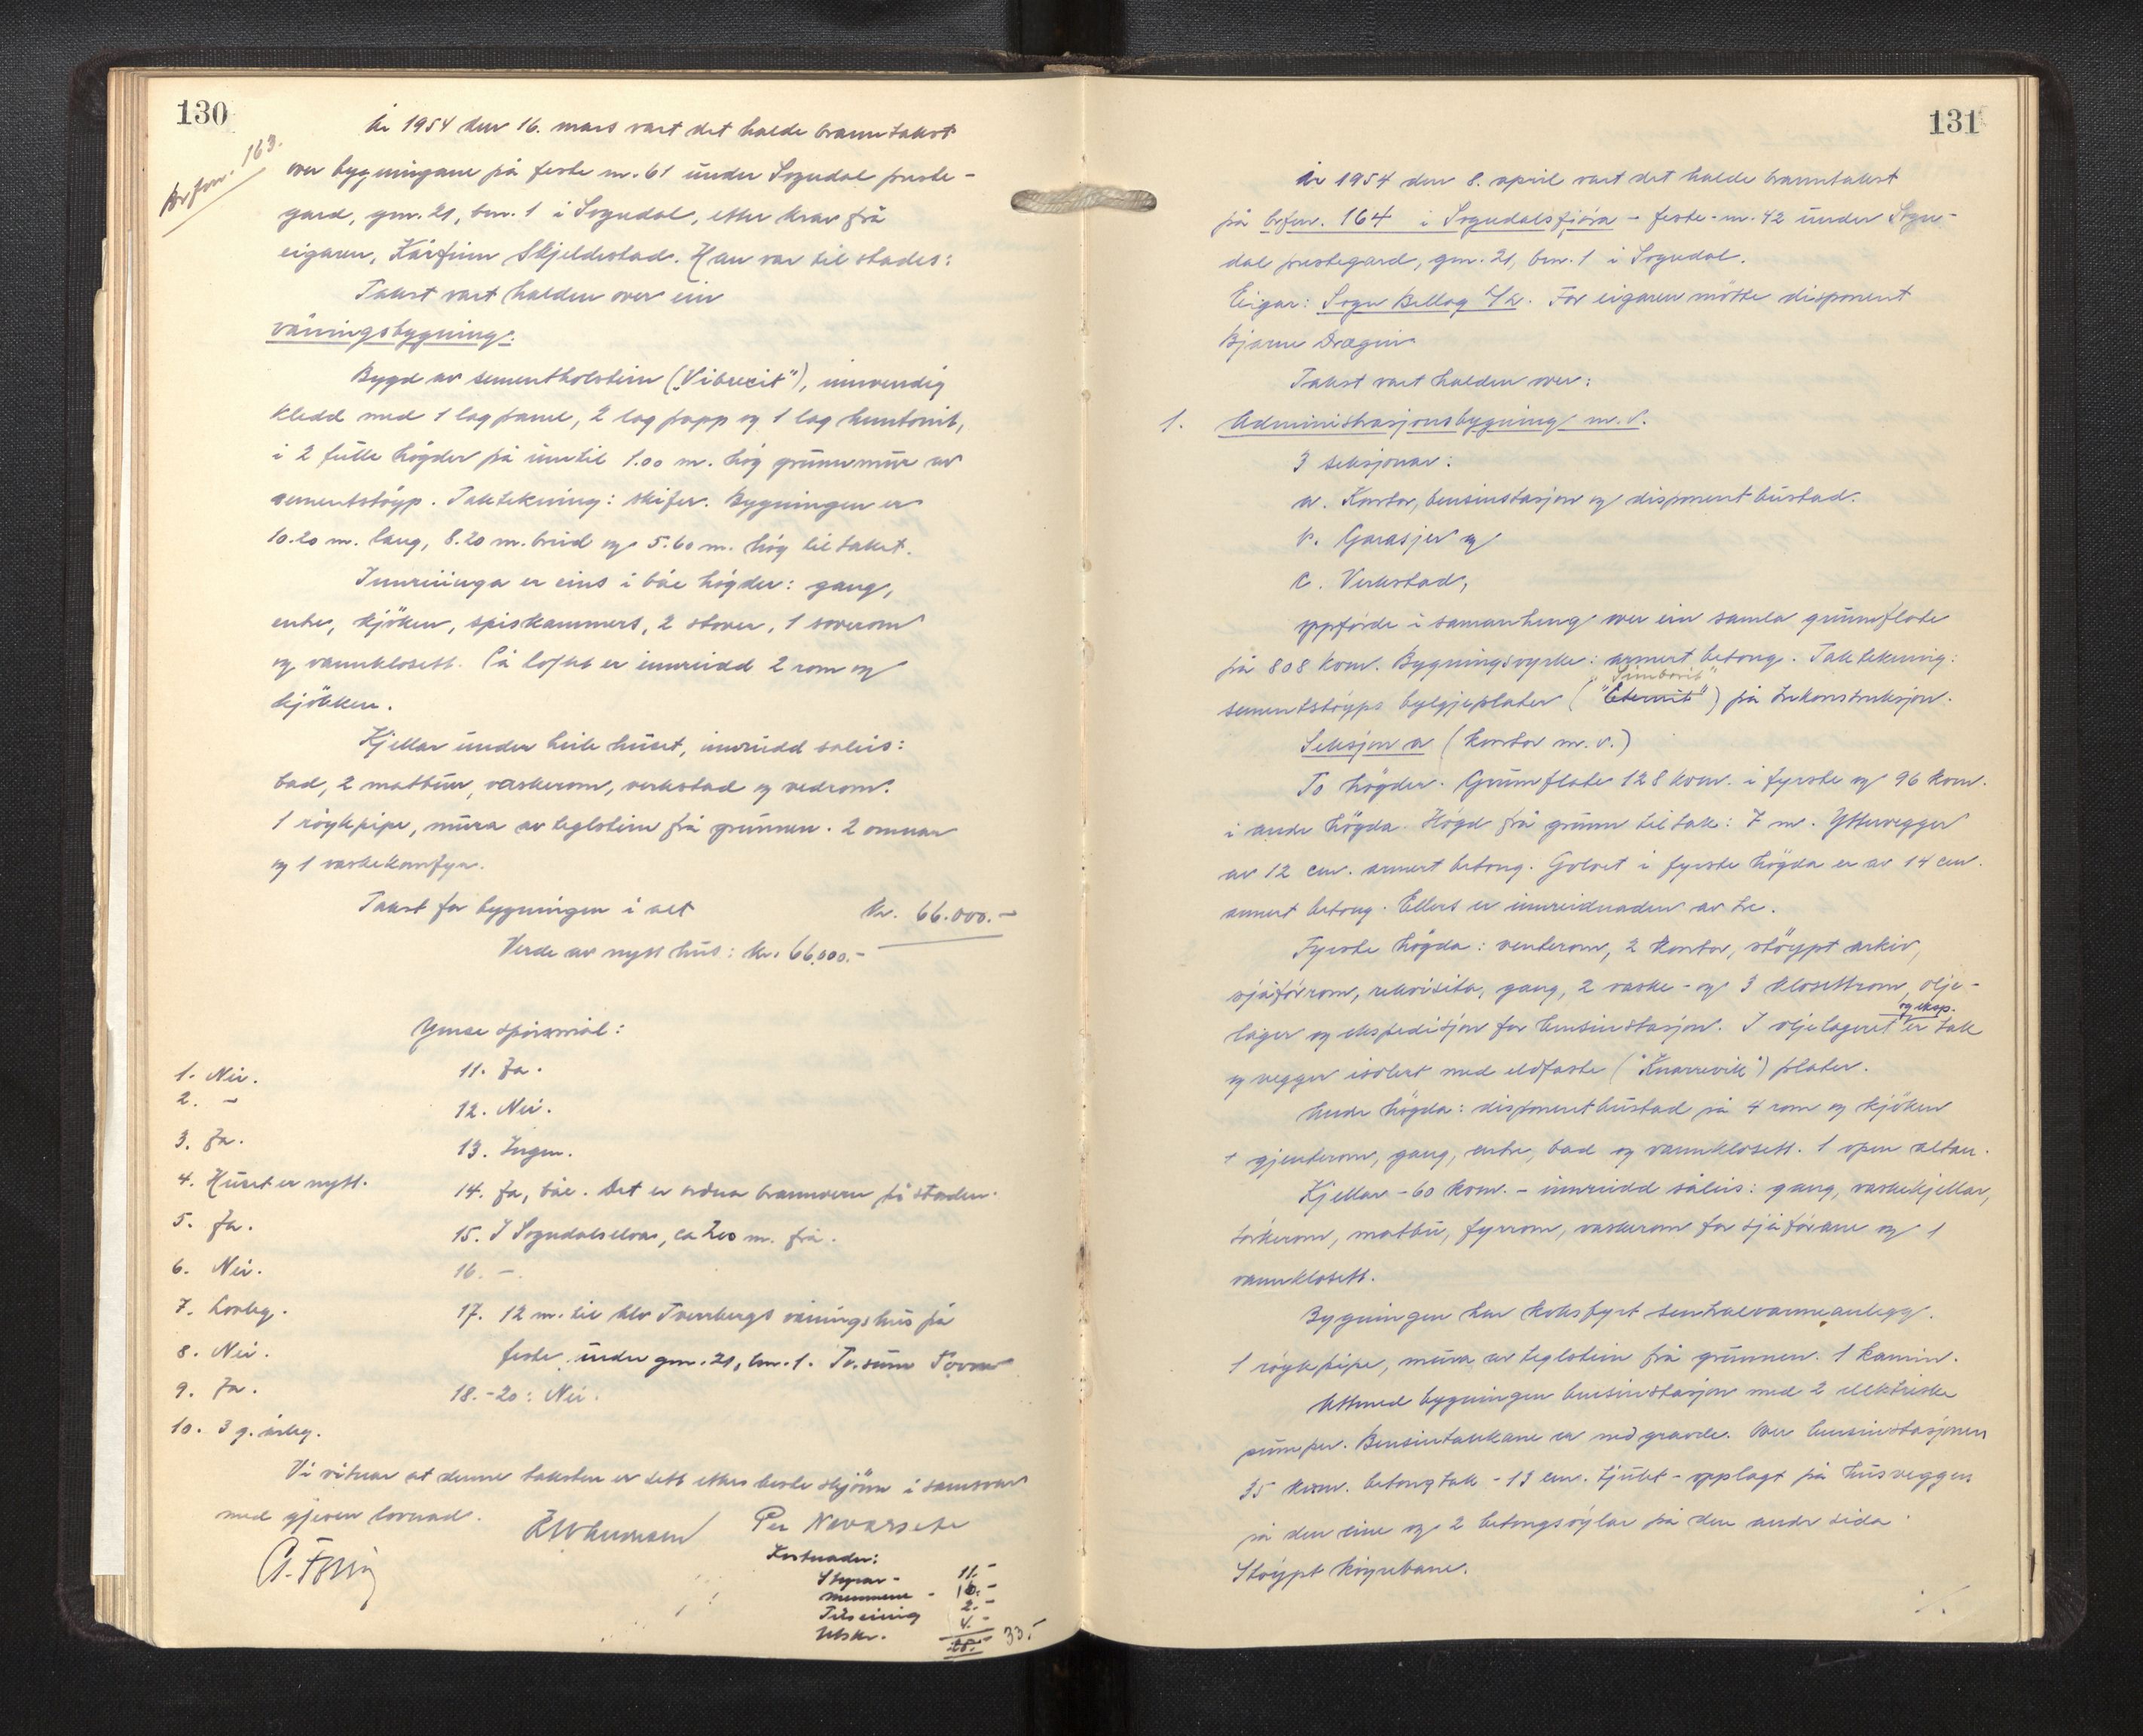 130
Brfnr. 163.
År 1954 den 16. mars vart det halde branntakst
over bygningane på feste nr. 61 under Sogndal preste-
gard, gnr. 21, bnr. 1 i Sogndal, etter krav frå
eigaren, Kårfinn Skjeldestad. Han var til stades:
Takst vart halden over ein
våningsbygning.
Bygd av sementholstein ("Vibrecit"), innvendig
kledd med 1 lag panel, 2 lag papp og 1 lag huntonit,
i 2 fulle högder på inntil 1.00 m. hög grunnmur av
sementstöyp. Taktekning: skifer. Bygningen er
10.20 m. lang, 8.20 m. breid og 5.60 m. hög til taket.
Innreiinga er eins i båe högder: gang,
entre, kjöken, spiskammers, 2 stover, 1 soverom
og vannklosett. På loftet er innreidd 2 rom og
kjökken.
Kjellar under heile huset, innreidd såleis:
bad, 2 matbuer, vaskerom, verkstad og vedrom.
1 röykpipe, mura av teglstein frå grunnen. 2 omnar
og 1 vaskekomfyr.
Takst for bygningen i alt kr. 66.000.-
Verde av nytt hus: kr. 66.000.-
Ymse spörsmål:
1. Nei.
2. -
3. Ja.
4. Huset er nytt.
5. Ja.
6. Nei.
7. Lovleg.
8. Nei.
9. Ja.
10. 3 g. årleg.
11. Ja.
12. Nei.
13. Ingen.
14. Ja, båe. Det er ordna brannvern på staden.
15. I Sogndalselva, ca 200 m. frå.
16. -
17. 12 m. til Tverrbergs våningshus på
feste under gnr. 21, bnr. 1.
18.-20: Nei.
Vi vitnar at denne taksten er sett etter beste skjönn i samsvar
med gjeven lovnad.
Per Navarsete
Kostnader:
Styrar - 11.-
mennene - 16.-
Tilseiing 2.-
Utskr. 4.-
33.-
131
År 1954 den 8. april vart det halde branntakst
på brfnr. 164 i Sogndalsfjöra - feste-nr. 42 under Sogn-
dal prestegard, gnr. 21, bnr. 1 i Sogndal.
Eigar: Sogn Billag L/L. For eigaren mötte disponent
Bjarne Drægni.
Takst vart halden over:
1. Administrasjonsbygning m. v.
3 seksjonar:
a. Kontor, bensinstasjon og disponentbustad.
b. Garasjer og
c. Verkstad,
oppförde i samanheng over ein samla grunnflate
på 808 kvm. Bygningsvyrke: armert betong. Taktekning:
sementstöypt bylgjeplater ("Eternit") på trekonstruksjon.
Seksjon a (kontor m. v.)
To högder. Grunnflate 128 kvm. i fyrste og 96 kvm.
i andre högda. Högd frå grunn til tak: 7 m. Yttervegger
av 12 cm. armert betong. Golvet i fyrste högda er av 14 cm.
armert betong. Ellers er innreidnaden av tre.
Fyrste högda: venterom, 2 kontor, stöypt arkiv,
sjåförrom, rekvisita, gang, 2 vaske- og 3 klosettrom, olje-
lager og ekspedisjon for bensinstasjon. I oljelageret og eksp. er tak
og vegger isolert med eldfaste ("Knarrevik") plater.
Andre högda: disponentbustad på 4 rom og kjöken
1 gjenterom, gang, entre, bad og vannklosett. 1 open altan.
Kjellar - 60 kvm. - innreidd såleis: gang, vaskekjellar,
törkerom, matbu, fyrrom, vaskerom for sjåförane og 1
vannklosett.
Bygningen har koksfyrt sentralvarmeanlegg.
1 röykpipe, mura av teglstein frå grunnen. 1 kamin.
Attmed bygningen bensinstasjon med 2 elektriske
pumper. Bensintankane er nedgravde. Over bensinstasjonen
35 kvm. betongtak - 13 cm. tjukt - opplagt på husveggen
på den eine og 2 betongsöylar på den andre sida.
Stöypt köyrebane.
./.